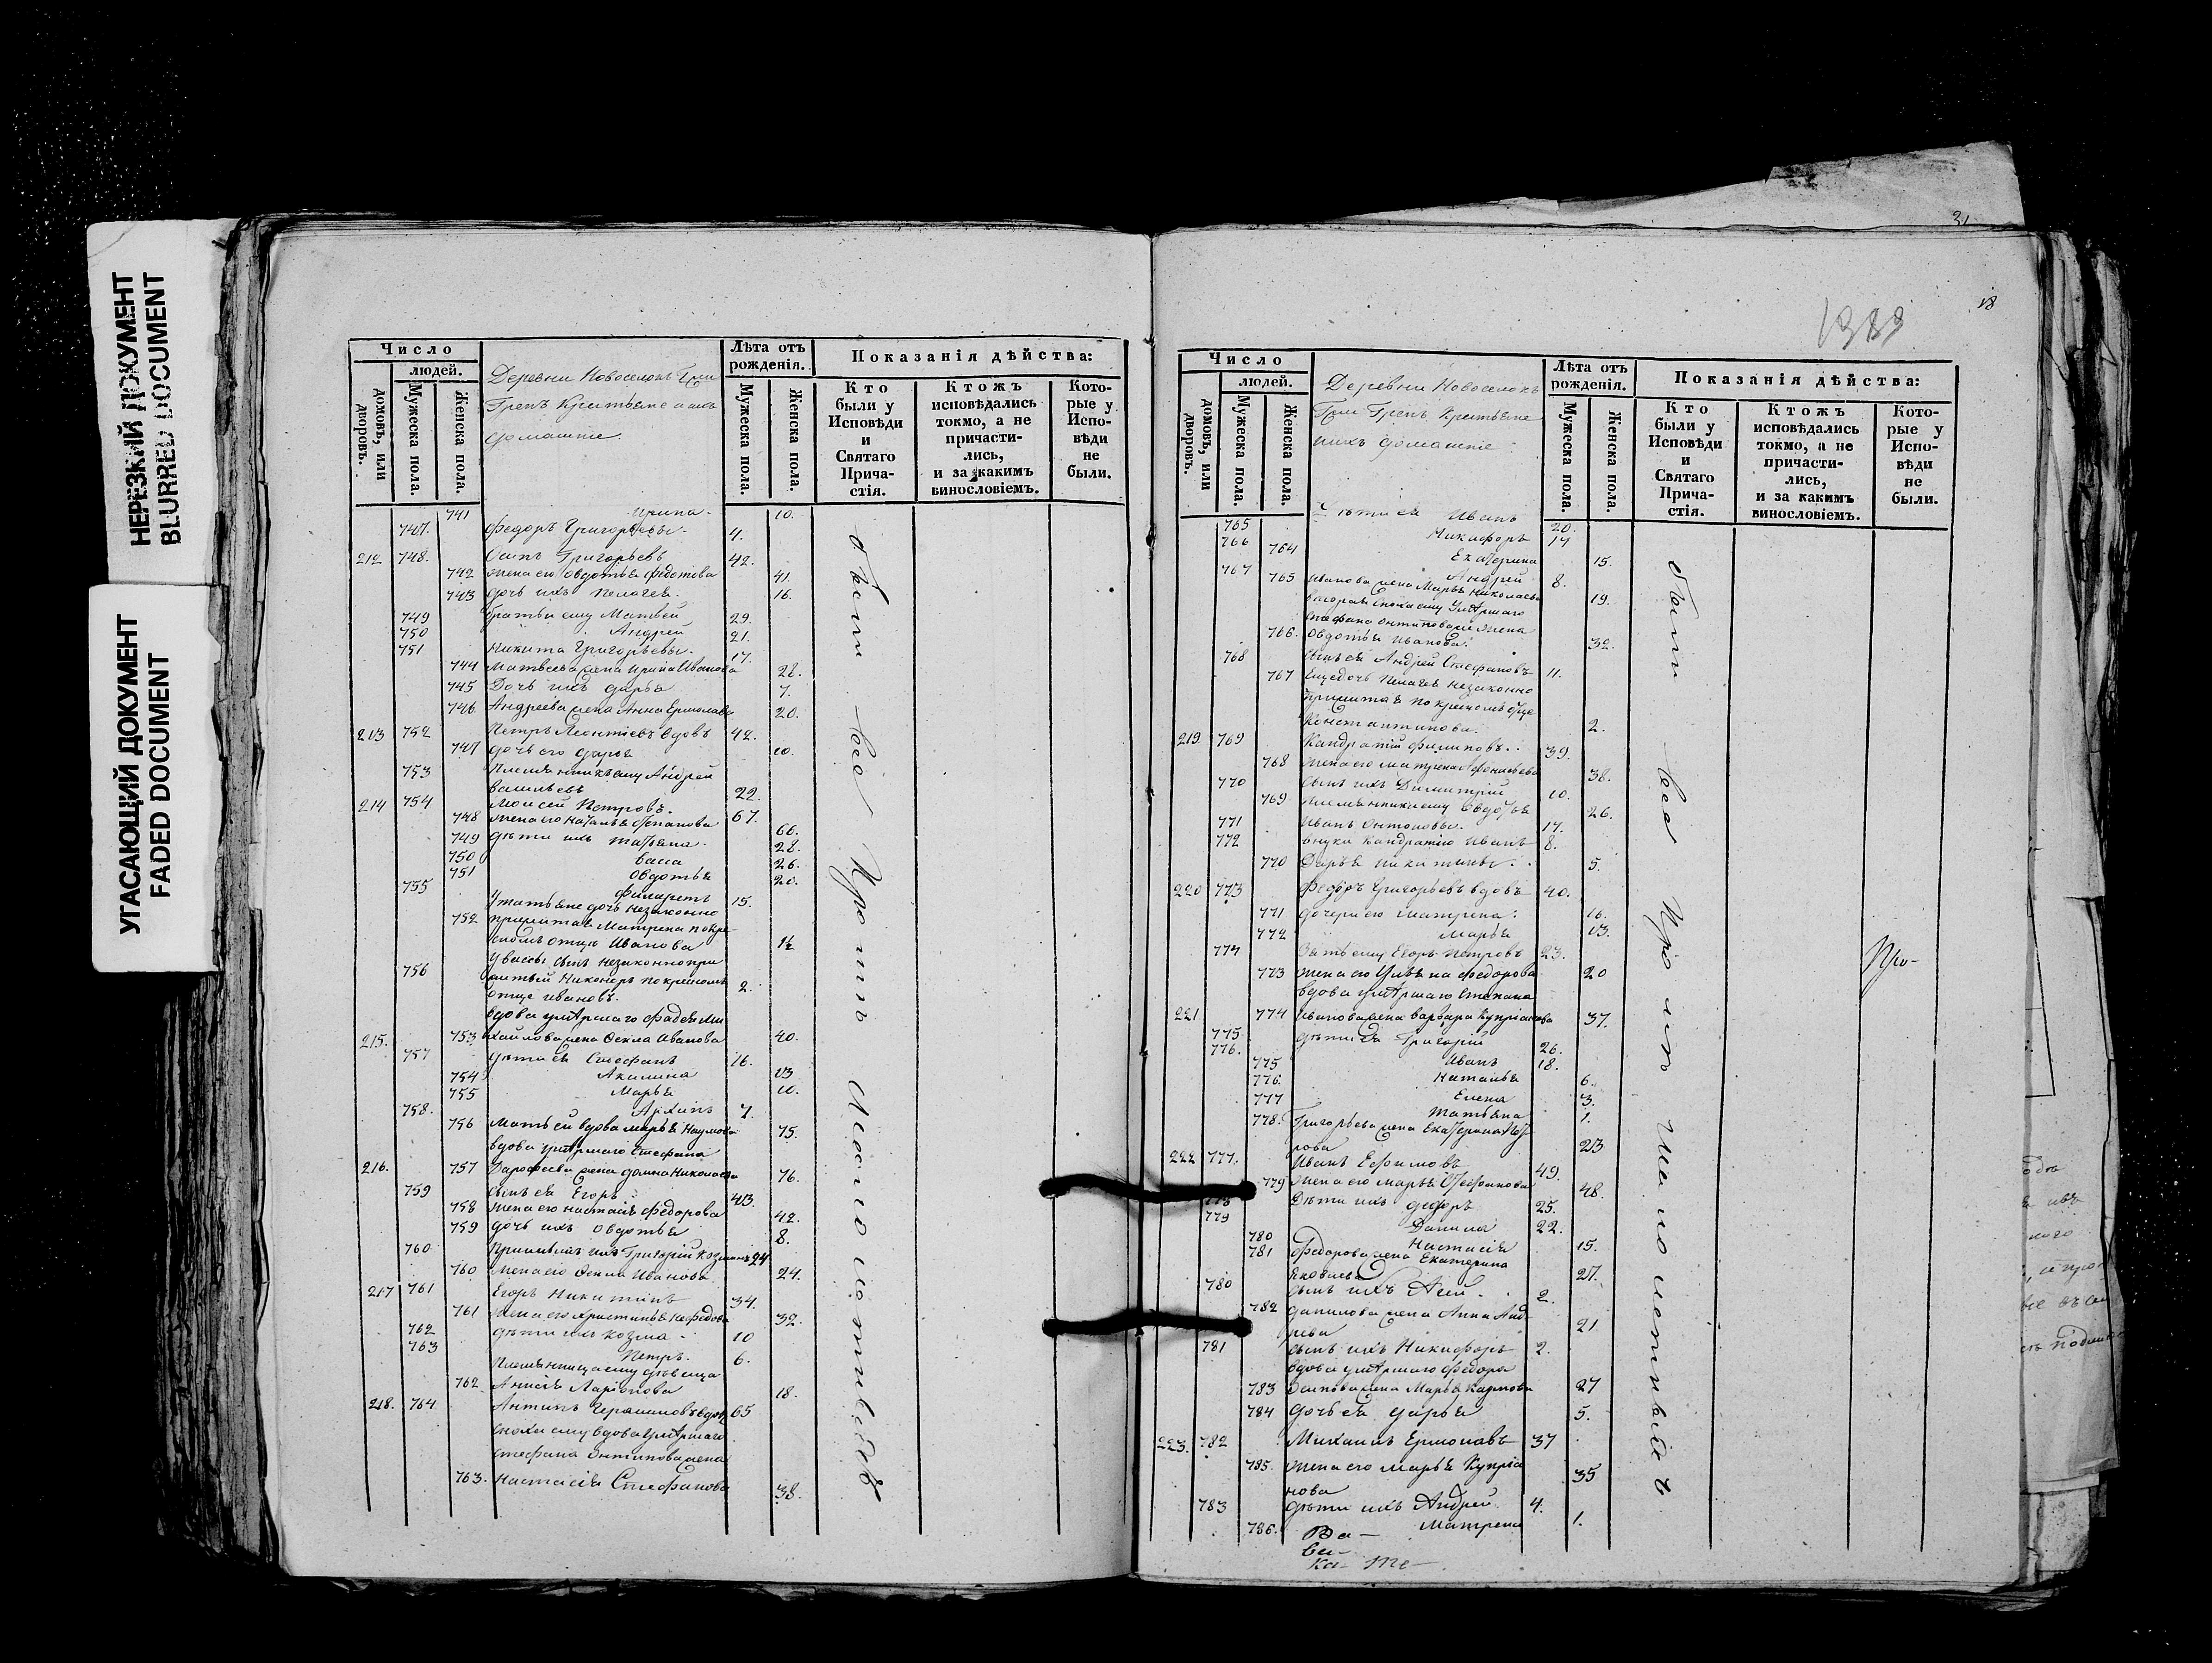 НЕРЕЗКИЙ ДОКУМЕНТ
BLURRED DOCUMENT
УГАСАЮЩИЙ ДОКУМЕНТ
FADED DOCUMENT
Число
людей.
домовъ, или дворовъ.
Мужеска пола.
Женска пола.
Деревни Новоселокъ
Крестьяне и ихъ
домашніе.
Лѣта отъ рожденія.
Мужеска пола.
Женска пола.
Показанія дѣйства:
Кто были у Исповѣди и Святаго Прича-стія.
Ктожъ исповѣдались токмо, а не причасти-лись, и за какимъ винословіемъ.
Кото-рые у Испо-вѣди не были.
741 Ирина. 10.
747. Федоръ Григорьевы. 4.
212 748. Осипъ Григорьевъ 42.
742 Жена его Овдотья Федотова 41.
743 Дочь ихъ Пелагея. 16.
749 Братья ему Матвей 29.
750 Андрей 21.
751 Никита Григорьевы. 17.
744 Матвеева жена Ирина Иванова 28.
745 Дочь ихъ Дарья 7.
746 Андреева жена Анна Ермолаева 20.
213 752 Петръ Леонтіевъ вдовъ 42.
747 Дочь его Дарья 10.
753 Племянникъ ему Андрей
Васильевъ 22.
214 754 Моисей Петровъ. 67.
748 Жена его Наталья Степанова 66.
749 Дѣти ихъ Татьяна. 28.
750 Васса 26.
751 Овдотья 20.
755 Филаретъ 15.
У Татьяны дочь незаконно
752 прижитая Матрена по кре-
сномъ отцѣ Иванова
У Вассы сынъ незаконно при
756 житый Никоноръ по кресномъ 2.
отце Ивановъ.
Вдова умершаго Фадея Ми
215. 753 хайлова жена Фекла Иванова 40.
757 Дѣти ея Стефанъ 16.
754 Акилина 13
755 Марья 10.
758. Архипъ 7.
756 Мать ей вдова Марья Наумова 75.
Вдова умершаго Стефана
216. 757 Дорофеева жена Домна Николаева 76.
759 Сынъ ея Егоръ 43.
758 Жена его Настасія Федорова 42.
759 Дочь ихъ Овдотья 8.
760 Григорій Козминъ 24
760 Жена его Фекла Иванова 24.
217 761 Егоръ Никитинъ 34.
761 Жена его Христинья Нефедова 32.
762 Дѣти ихъ Козма 10
763 Петръ. 6.
Племянница ему девица
762. Анисія Ларіонова 18.
218. 764 Антипъ Герасимовъ вдовъ 65
Сноха ему вдова умершаго
Стефана Онтипова жена
763. Настасія Стефанова 38.
были все Кроме Малолетныхъ
31
18
1389
Число
людей.
домовъ, или дворовъ.
Мужеска пола.
Женска пола.
Деревни Новоселокъ
Крестьяне
ихъ домашніе.
Лѣта отъ рожденія.
Мужеска пола.
Женска пола.
Показанія дѣйства:
Кто были у Исповѣди и Святаго Прича-стія.
Ктожъ исповѣдались токмо, а не причасти-лись, и за какимъ винословіемъ.
Кото-рые у Испо-вѣди не были.
765 Дѣти ея Иванъ 20.
766 Никифоръ 17
764 Екатерина 15.
767 Андрей 8.
765 Иванова жена Марья Николаева 19.
вторая сноха ему умершаго
Стефана Онтипова жена
766. Овдотья Иванова. 32.
768 Сынъ ея Андрей Стефановъ 11.
767 Еще дочь Пелагея незаконно
прижитая по кресномъ отце
Константинова. 2.
219 769 Кандратій Филиповъ. 39.
768 Жена его Матрена Афонасьева 38.
770 Сынъ ихъ Димитрій 10.
769 Племянники ему Овдотья 26.
771 Иванъ Онтоновы. 17.
772 Внуки Кандратію Иванъ 8.
770 Дарья Никитины. 5.
220 773 Федоръ Григорьевъ вдовъ 40.
771 Дочери его Матрена. 16.
772 Марья 13.
774 Зять ему Егоръ Петровъ 23.
773 Жена его Ульяна Федорова 20
Вдова умершаго Степана
221 774 Иванова жена Варвара Купріанова 37.
775. Дѣти ея Григорій 26.
776. Иванъ 18.
775 Наталья 6.
776. Елена 3.
777 Татьяна 1.
778. Григорьева жена Екатерина Пет
рова 23
222 777. Иванъ Ефимовъ 49.
779 Жена его Марья Стефанова 48.
778 Дѣти ихъ Федоръ 25.
779 Данила 22.
780 Настасія 15.
781 Федорова жена Екатерина
Яковлева 27.
780 Сынъ ихъ 2.
782 Данилова жена Анна Анд
реева 21
781 Сынъ ихъ Никифоръ 2.
Вдова умершаго Федора
783 Осипова жена Марья Карпова 27
784 Дочь ея Дарья 5.
223. 782 Михаилъ Ермолаевъ 37
785. Жена его Марья Купріа
нова 35
783 Дѣти ихъ Андрей. 4.
786. Матрена 1.
были все Кроме Малолетныхъ
Про-